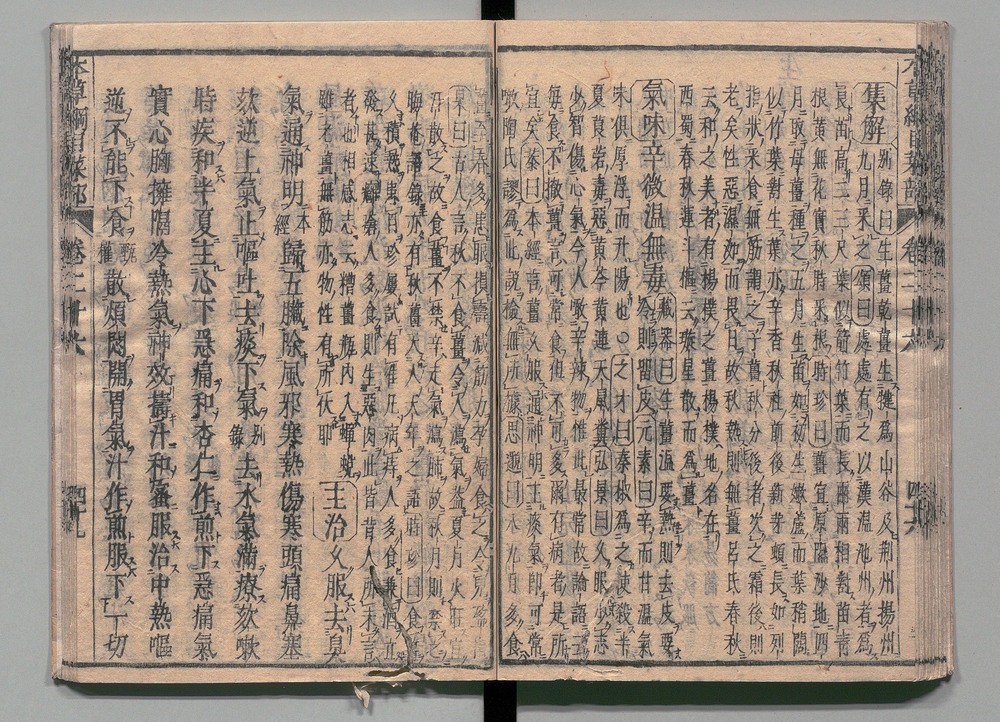 本草綱目菜部 卷二十六
集解 別錄曰生薑乾薑生犍爲山谷及荆州揚州
九月采之頌曰處處有之以漢溫池州者爲
良苗高二三尺葉似箭竹葉而長兩兩相對苗青
根黃無花實秋時采根時珍曰薑宜原隰沙地四
月取母薑種之五月生苗如初生嫩蘆而葉稍闊
似竹葉對生葉亦辛香秋社前後新芽頓長如列
指狀采食無筋謂之子薑秋分後者次之霜後則
老矣性惡濕洳而畏日故秋熱則無薑呂氏春秋
云和之美者有楊樸之薑楊樸地名在
西蜀春秋運斗樞云璇星散而爲薑
氣味辛微溫無毒 藏器曰生薑溫要熱則去皮要
冷則留皮元素曰辛而甘溫氣
味俱厚浮而升陽也○之才曰秦椒爲之使殺半
夏莨菪毒惡黃芩黃連天鼠糞弘景曰久服少志
少智傷心氣今人噉辛辣物惟此最常故論語云
每食不撤薑言可常食但不可多爾有病者是所
宜矣恭曰本經言薑久服通神明主痰氣即可常
噉陶氏謬爲此說檢無所據思邈曰八九月多食
薑至春多患眼損壽減筋力孕婦食之令兒盈指
杲曰古人言秋不食薑令人瀉氣蓋夏月火旺宜
汗散之故食薑不禁辛走氣瀉肺故秋月則禁之
晦菴語錄亦有秋薑夭人天年之語時珍曰食薑
久積熱患目珍屢試有准凡病痔人多食兼酒立
發甚速癰瘡人多食則生惡肉此皆昔人所未言
者也相感志云糟薑瓶內入蟬蛻
雖老薑無筋亦物性有所伏耶
主治久服去臭
氣通神明本經歸五臟除風邪寒熱傷寒頭痛鼻塞
欬逆上氣止嘔吐去痰下氣別錄去水氣滿療欬嗽
時疾和半夏主心下急痛和杏仁作煎下急痛氣
實心胸擁隔冷熱氣神效搗汁和蜜服治中熱嘔
逆不能下食甄權散煩悶開胃氣汁作煎服下一切
本草綱目菜部 卷二十六